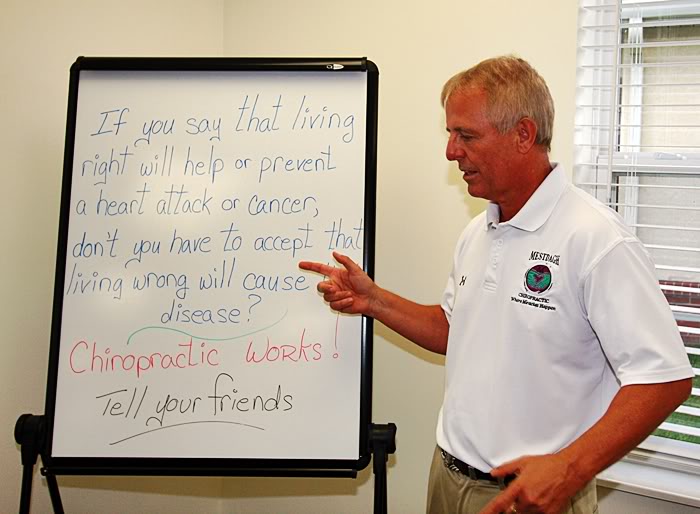 If you say that living
right will help or prevent
a heart attack or cancer,
don't you have to accept that
living wrong will cause
disease?
Chiropractic WORKS!
Tell your friends
MESTDAGH
CHIROPRACTIC
Where Miracles Happen